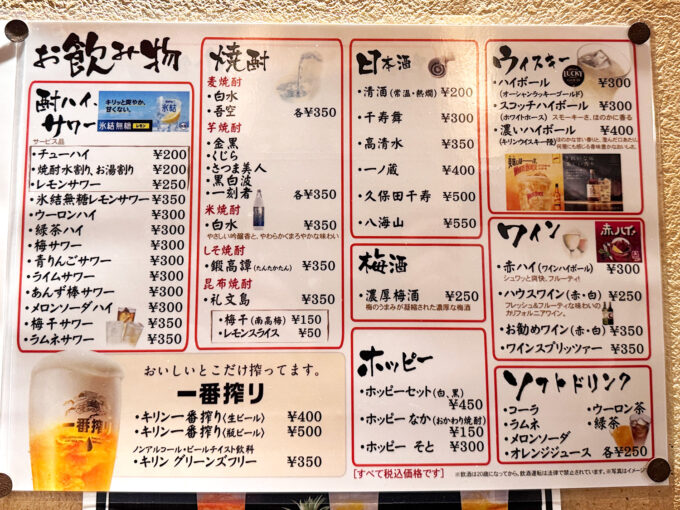 お飲み物
酎ハイ・サワー
キリッと爽やか、
甘くない。
氷結無糖 レモン
サービス品
・チューハイ ¥200
・焼酎水割り、お湯割り ¥200
・レモンサワー ¥250
・氷結無糖レモンサワー ¥350
・ウーロンハイ ¥300
・緑茶ハイ ¥300
・梅サワー ¥300
・青りんごサワー ¥350
・ライムサワー ¥350
・あんず棒サワー ¥350
・メロンソーダハイ ¥350
・梅干サワー ¥350
・ラムネサワー ¥350
焼酎
麦焼酎
・白水
・吾空 各¥350
芋焼酎
・金黒
・くじら
・さつま美人
・黒白波
・一刻者 各¥350
米焼酎
・白水 ¥350
やさしい吟醸香と、やわらかくまろやかな味わい
しそ焼酎
・鍛高譚(たんたかたん) ¥350
昆布焼酎
・礼文島 ¥350
・梅干(南高梅) ¥150
・レモンスライス ¥50
日本酒
・清酒(常温・熱燗) ¥200
・千寿舞 ¥300
・高清水 ¥350
・一ノ蔵 ¥400
・久保田千寿 ¥500
・八海山 ¥550
梅酒
・濃厚梅酒 ¥250
梅のうまみが凝縮された濃厚な梅酒
ホッピー
・ホッピーセット(白、黒) ¥450
・ホッピー なか(おかわり焼酎) ¥150
・ホッピー そと ¥300
ウィスキー
LUCKY
・ハイボール ¥300
(オーシャンラッキーゴールド)
・スコッチハイボール ¥300
(ホワイトホース) スモーキーさ、ほのかに香る
・濃いハイボール ¥400
(キリンウイスキー陸)
ワイン
赤ハイ!
・赤ハイ(ワインハイボール) ¥300
シュワッと爽快、フルーティ!
・ハウスワイン(赤・白) ¥250
フレッシュ&フルーティな味わいの
カリフォルニアワイン。
・お勧めワイン(赤・白) ¥350
・ワインスプリッツァー ¥350
ソフトドリンク
・コーラ ・ウーロン茶
・ラムネ ・緑茶
・メロンソーダ
・オレンジジュース 各¥250
おいしいとこだけ搾ってます。
一番搾り
・キリン一番搾り(生ビール) ¥400
・キリン一番搾り(瓶ビール) ¥500
ノンアルコール・ビールテイスト飲料
・キリン グリーンズフリー ¥350
KIRIN
一番搾り
[すべて税込価格です]
※飲酒は20歳になってから。飲酒運転は法律で禁止されています。※写真はイメージ